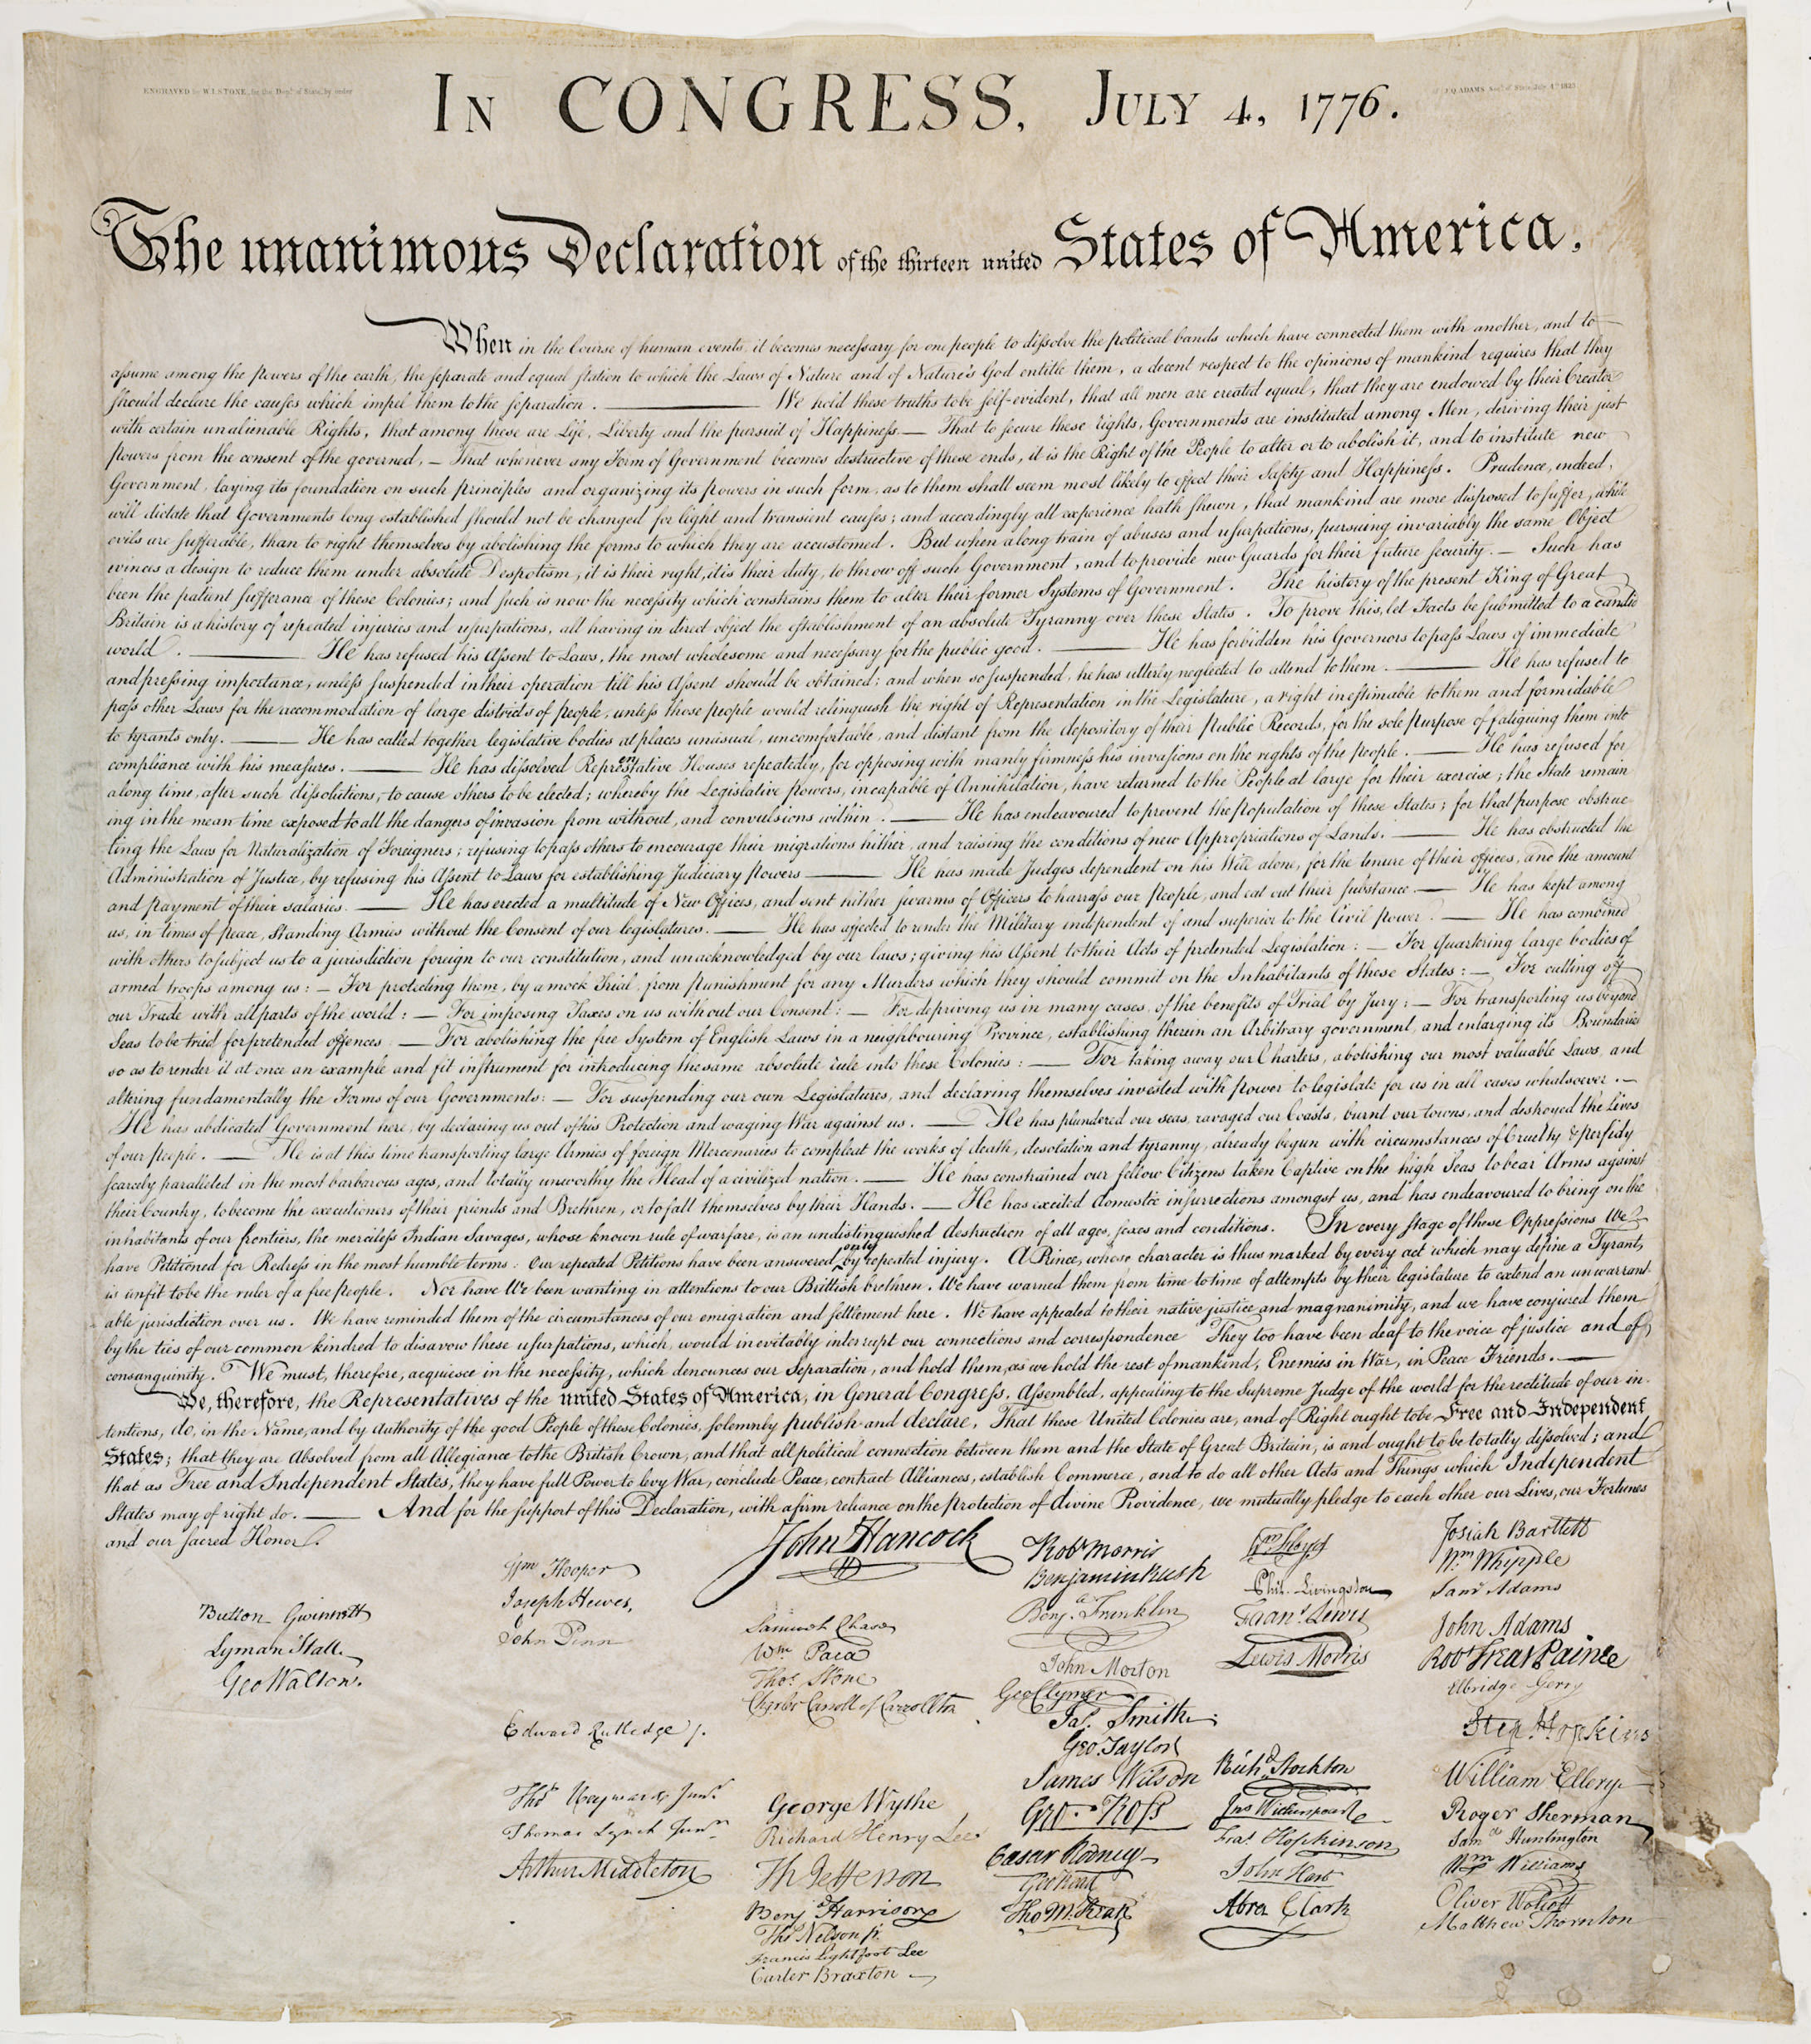 ENGRAVED by W.I.STONE, for the Dept. of State, by order
of J.Q.ADAMS Secy. of State, July 4th 1823
In CONGRESS, July 4, 1776.
The unanimous Declaration of the thirteen united States of America,
When in the Course of human events, it becomes necessary for one people to dissolve the political bands which have connected them with another, and to
assume among the powers of the earth, the separate and equal station to which the Laws of Nature and of Nature's God entitle them, a decent respect to the opinions of mankind requires that they
should declare the causes which impel them to the separation. — We hold these truths to be self-evident, that all men are created equal, that they are endowed by their Creator
with certain unalienable Rights, that among these are Life, Liberty and the pursuit of Happiness. — That to secure these rights, Governments are instituted among Men, deriving their just
powers from the consent of the governed, — That whenever any Form of Government becomes destructive of these ends, it is the Right of the People to alter or to abolish it, and to institute new
Government, laying its foundation on such principles and organizing its powers in such form, as to them shall seem most likely to effect their Safety and Happiness. Prudence, indeed,
will dictate that Governments long established should not be changed for light and transient causes; and accordingly all experience hath shewn, that mankind are more disposed to suffer, while
evils are sufferable, than to right themselves by abolishing the forms to which they are accustomed. But when a long train of abuses and usurpations, pursuing invariably the same Object
evinces a design to reduce them under absolute Despotism, it is their right, it is their duty, to throw off such Government, and to provide new Guards for their future security. — Such has
been the patient sufferance of these Colonies; and such is now the necessity which constrains them to alter their former Systems of Government. The history of the present King of Great
Britain is a history of repeated injuries and usurpations, all having in direct object the establishment of an absolute Tyranny over these States. To prove this, let Facts be submitted to a candid
world. — He has refused his Assent to Laws, the most wholesome and necessary for the public good. — He has forbidden his Governors to pass Laws of immediate
and pressing importance, unless suspended in their operation till his Assent should be obtained; and when so suspended, he has utterly neglected to attend to them. — He has refused to
pass other Laws for the accommodation of large districts of people, unless those people would relinquish the right of Representation in the Legislature, a right inestimable to them and formidable
to tyrants only. — He has called together legislative bodies at places unusual, uncomfortable, and distant from the depository of their Public Records, for the sole purpose of fatiguing them into
compliance with his measures. — He has dissolved Representative Houses repeatedly, for opposing with manly firmness his invasions on the rights of the people. — He has refused for
a long time, after such dissolutions, to cause others to be elected; whereby the Legislative powers, incapable of Annihilation, have returned to the People at large for their exercise; the State remain
ing in the mean time exposed to all the dangers of invasion from without, and convulsions within. — He has endeavoured to prevent the population of these States; for that purpose obstruc
ting the Laws for Naturalization of Foreigners; refusing to pass others to encourage their migrations hither, and raising the conditions of new Appropriations of Lands. — He has obstructed the
Administration of Justice, by refusing his Assent to Laws for establishing Judiciary powers — He has made Judges dependent on his Will alone, for the tenure of their offices, and the amount
and payment of their salaries. — He has erected a multitude of New Offices, and sent hither swarms of Officers to harrass our people, and eat out their substance. — He has kept among
us, in times of peace, Standing Armies without the Consent of our legislatures. — He has affected to render the Military independent of and superior to the Civil power. — He has combined
with others to subject us to a jurisdiction foreign to our constitution, and unacknowledged by our laws; giving his Assent to their Acts of pretended Legislation: — For Quartering large bodies of
armed troops among us: — For protecting them, by a mock Trial from punishment for any Murders which they should commit on the Inhabitants of these States: — For cutting off
our Trade with all parts of the world: — For imposing Taxes on us without our Consent: — For depriving us in many cases, of the benefits of Trial by Jury: — For transporting us beyond
Seas to be tried for pretended offences — For abolishing the free System of English Laws in a neighbouring Province, establishing therein an Arbitrary government, and enlarging its Boundaries
so as to render it at once an example and fit instrument for introducing the same absolute rule into these Colonies: — For taking away our Charters, abolishing our most valuable Laws, and
altering fundamentally the Forms of our Governments: — For suspending our own Legislatures, and declaring themselves invested with power to legislate for us in all cases whatsoever. —
He has abdicated Government here, by declaring us out of his Protection and waging War against us. — He has plundered our seas, ravaged our Coasts, burnt our towns, and destroyed the Lives
of our people. — He is at this time transporting large Armies of foreign Mercenaries to compleat the works of death, desolation and tyranny, already begun with circumstances of Cruelty & perfidy
scarcely paralleled in the most barbarous ages, and totally unworthy the Head of a civilized nation. — He has constrained our fellow Citizens taken Captive on the high Seas to bear Arms against
their Country, to become the executioners of their friends and Brethren, or to fall themselves by their Hands. — He has excited domestic insurrections amongst us, and has endeavoured to bring on the
inhabitants of our frontiers, the merciless Indian Savages, whose known rule of warfare, is an undistinguished destruction of all ages, sexes and conditions. In every stage of these Oppressions We
have Petitioned for Redress in the most humble terms: Our repeated Petitions have been answered only by repeated injury. A Prince, whose character is thus marked by every act which may define a Tyrant,
is unfit to be the ruler of a free people. Nor have We been wanting in attentions to our Brittish brethren. We have warned them from time to time of attempts by their legislature to extend an unwarrant
able jurisdiction over us. We have reminded them of the circumstances of our emigration and settlement here. We have appealed to their native justice and magnanimity, and we have conjured them
by the ties of our common kindred to disavow these usurpations, which, would inevitably interrupt our connections and correspondence They too have been deaf to the voice of justice and of
consanguinity. We must, therefore, acquiesce in the necessity, which denounces our Separation, and hold them, as we hold the rest of mankind, Enemies in War, in Peace Friends. —
We, therefore, the Representatives of the united States of America, in General Congress, Assembled, appealing to the Supreme Judge of the world for the rectitude of our in-
tentions, do, in the Name, and by Authority of the good People of these Colonies, solemnly publish and declare, That these United Colonies are, and of Right ought to be Free and Independent
States; that they are Absolved from all Allegiance to the British Crown, and that all political connection between them and the State of Great Britain, is and ought to be totally dissolved; and
that as Free and Independent States, they have full Power to levy War, conclude Peace, contract Alliances, establish Commerce, and to do all other Acts and Things which Independent
States may of right do. — And for the support of this Declaration, with a firm reliance on the protection of divine Providence, we mutually pledge to each other our Lives, our Fortunes
and our sacred Honor.
Button Gwinnett
Lyman Hall
Geo Walton.
Wm Hooper
Joseph Hewes,
John Penn
Edward Rutledge /.
Thos Heyward Junr.
Thomas Lynch Junr.
Arthur Middleton
John Hancock
Samuel Chase
Wm Paca
Thos Stone
Charles Carroll of Carrollton
George Wythe
Richard Henry Lee
Th Jefferson
Benj Harrison
Thos Nelson jr.
Francis Lightfoot Lee
Carter Braxton
Robt Morris
Benjamin Rush
Benja Franklin
John Morton
Geo Clymer
Jas. Smith
Geo. Taylor
James Wilson
Geo. Ross
Caesar Rodney
Geo Read
Tho M:Kean
Wm Floyd
Phil. Livingston
Frans. Lewis
Lewis Morris
Richd Stockton
Jno Witherspoon
Fras. Hopkinson
John Hart
Abra Clark
Josiah Bartlett
Wm Whipple
Saml Adams
John Adams
Robt Treat Paine
Elbridge Gerry
Step. Hopkins
William Ellery
Roger Sherman
Saml Huntington
Wm Williams
Oliver Wolcott
Matthew Thornton